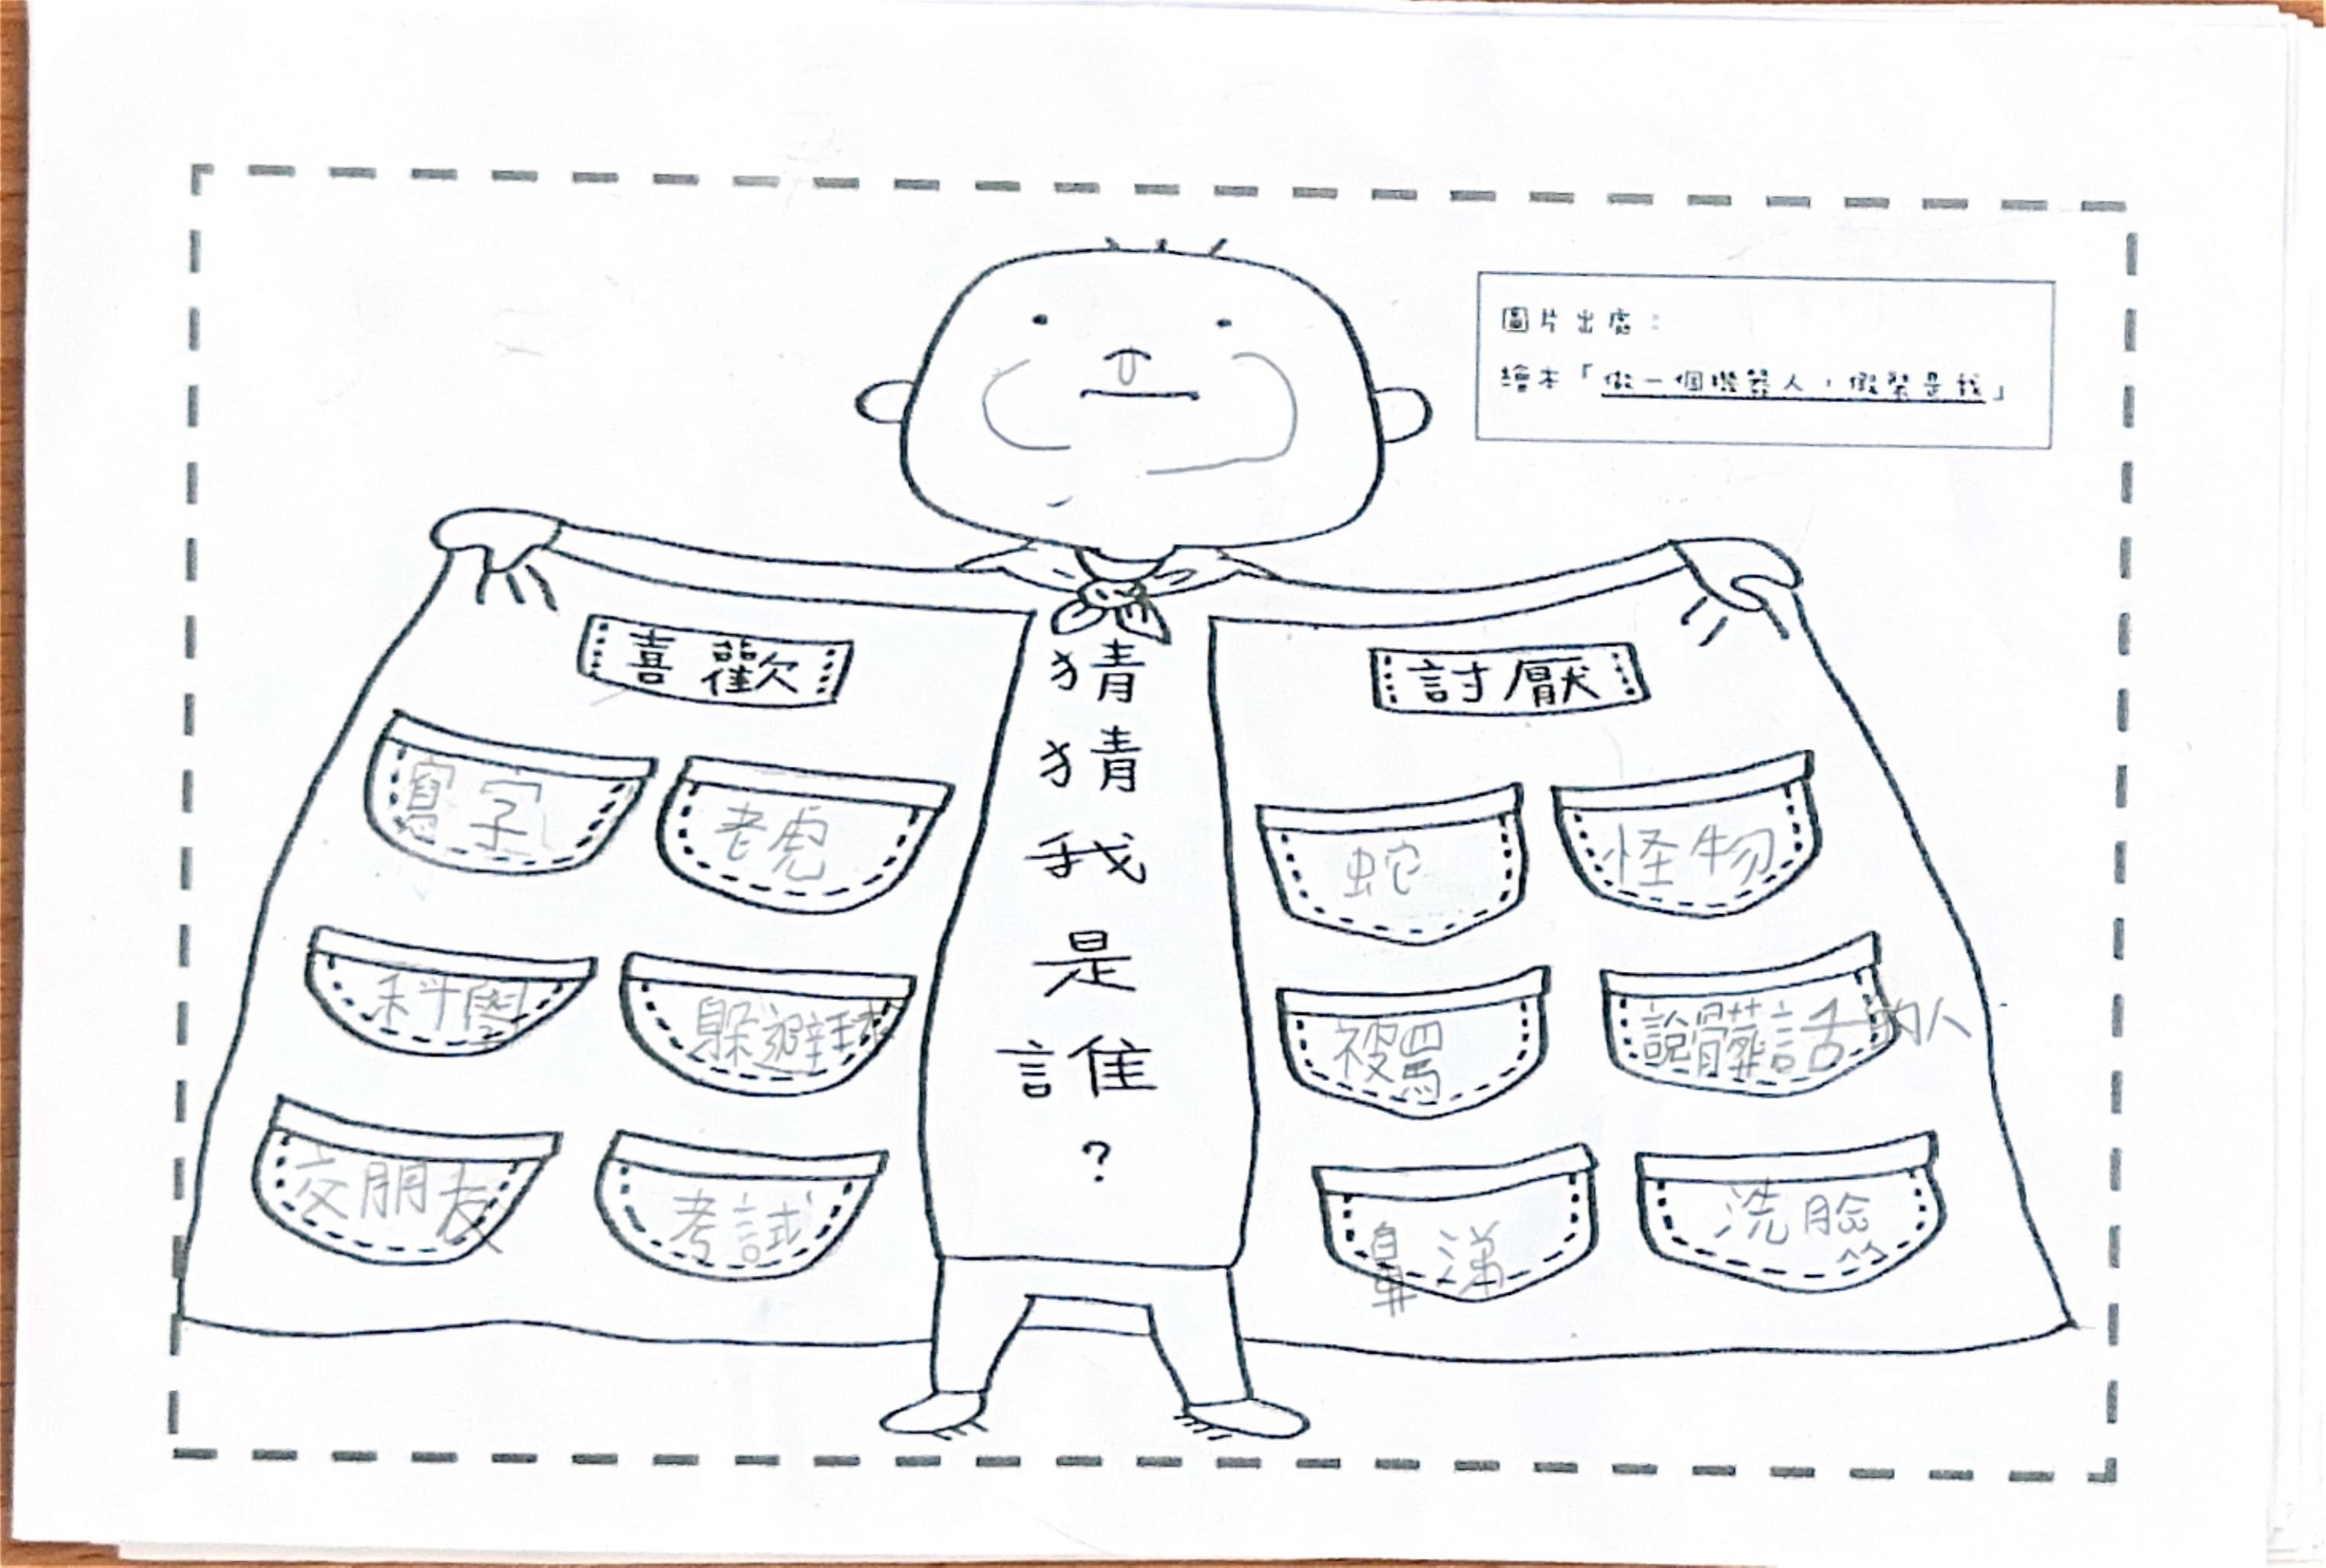 圖片出處：
繪本「做一個機器人，假裝是我」
猜猜我是誰？
喜歡
寫字
老虎
科學
躲避球
交朋友
考試
討厭
蛇
怪物
被罵
說髒話的人
鼻涕
洗臉